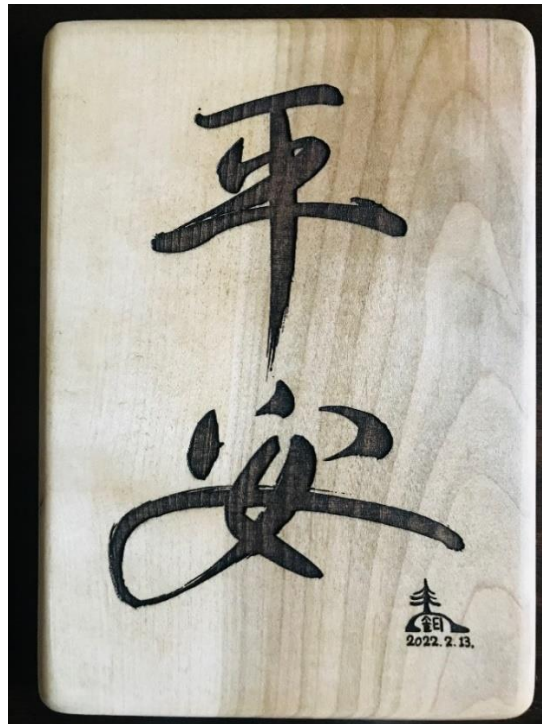 平
安
2022.2.13.